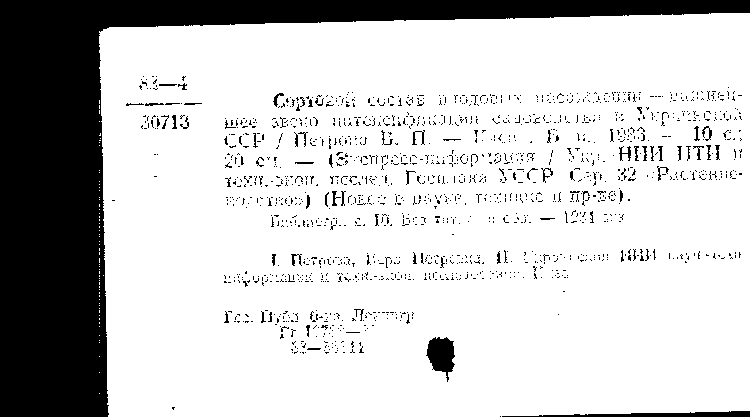 83—4
30713
Сортовой состав плодовых насаждений — важней-
шее звено интенсификации садоводства в Украинской
ССР / Петрова В. П. — Киев : Б. и., 1983. — 10 с.;
20 см. — (Экспресс-информация / Укр. НИИ НТИ и
техн.-экон. исслед. Госплана УССР. Сер. 32 «Растение-
водство») (Новое в науке, технике и пр-ве).
Библиогр.: с. 10. Без тит. л. и обл. — 1231 экз.
I. Петрова, Вера Петровна. II. Украинский НИИ научн.-техн
информации и техн.-экон. исследований.
Гос. Публ. б-ка. Ленингр